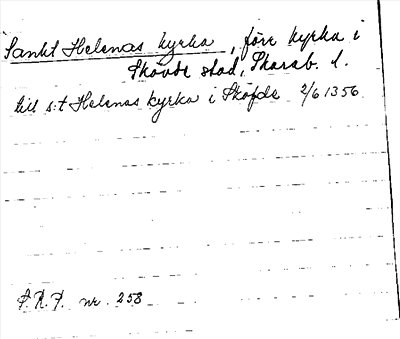 Sankt Helenas kyrka, förr kyrka i
Skövde stad, Skarab. l.
till s:t Helenas kyrka i Sköfde 2/6 1356
P.R.P. nr. 258